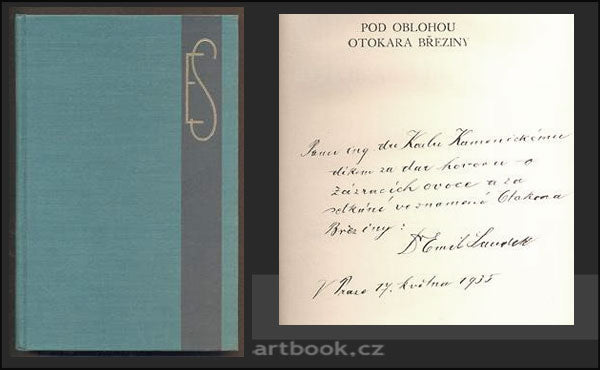 ES
POD OBLOHOU
OTOKARA BŘEZINY
Panu ing. dru Karlu Kamenickému
díkem za dar hovoru o
zázracích ovoce a za
setkání ve znamení Otokara
Březiny:
Dr Emil
V Praze 17. května 1935
artbook.cz